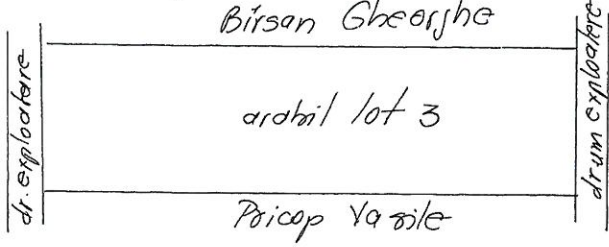 Bîrsan Gheorghe
dr. exploatare
arabil lot 3
drum exploatare
Pricop Vasile